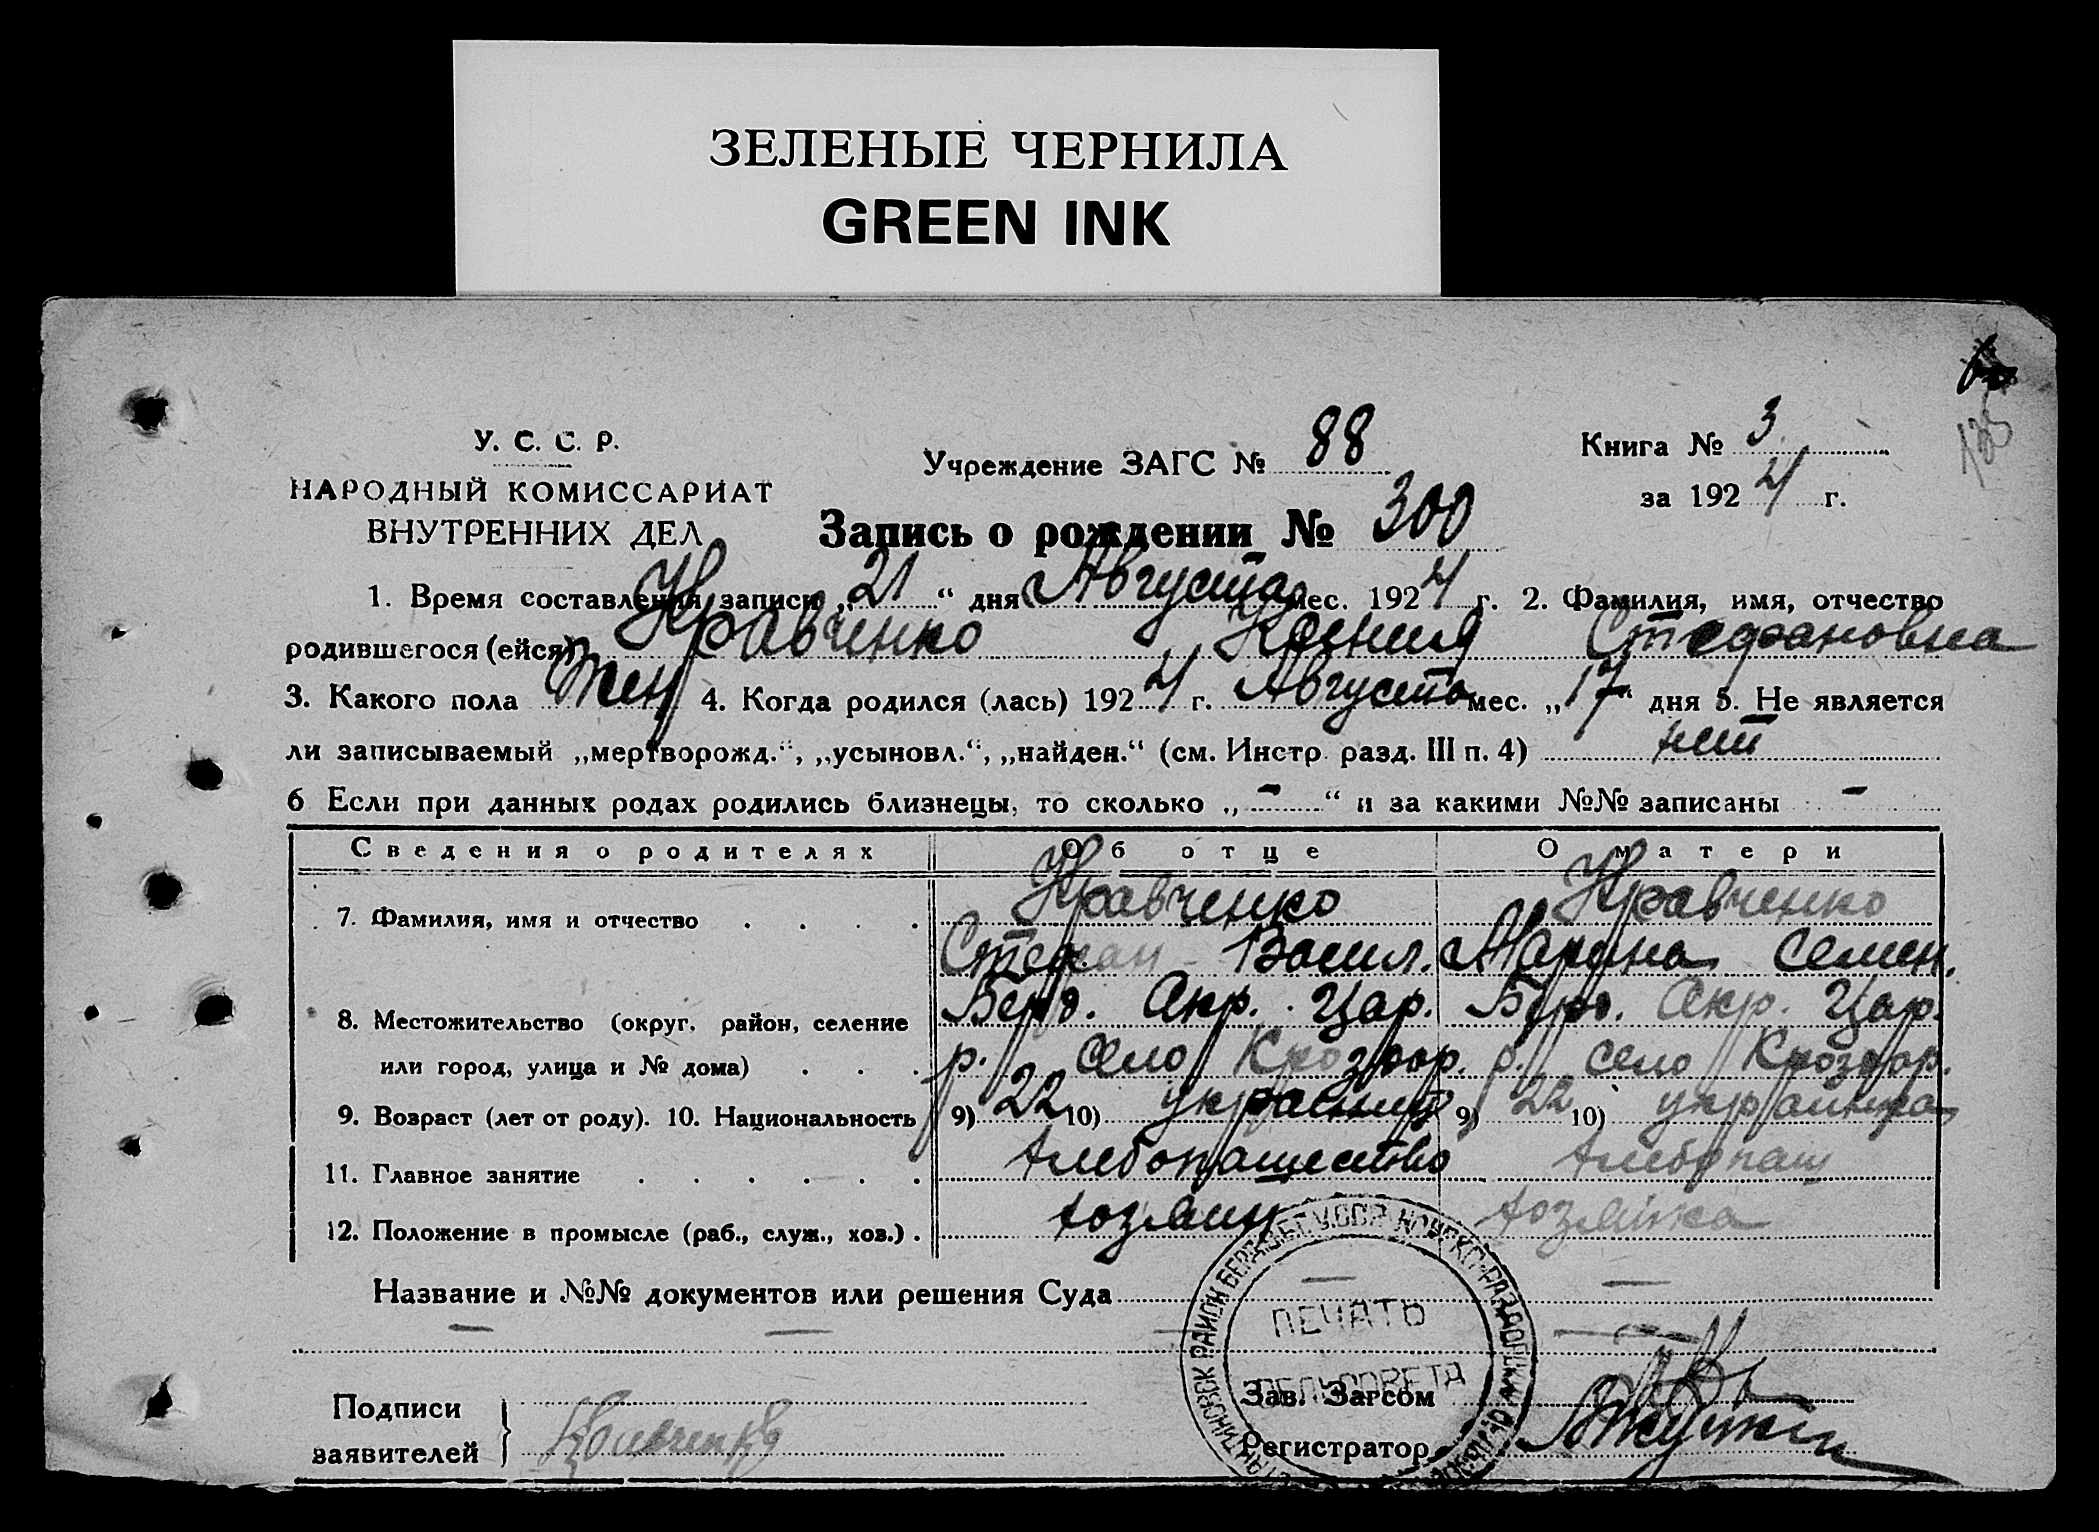 ЗЕЛЕНЫЕ ЧЕРНИЛА
GREEN INK
У. С. С. Р.
НАРОДНЫЙ КОМИССАРИАТ
ВНУТРЕННИХ ДЕЛ
Учреждение ЗАГС № 88
Книга № 3
за 1924 г.
Запись о рождении № 300
1. Время составления записи „21“ дня Августа мес. 1924 г. 2. Фамилия, имя, отчество
родившегося (ейся) Кравченко Ксения Стефановна
3. Какого пола Жен 4. Когда родился (лась) 1924 г. Августа мес. „17“ дня 5. Не является
ли записываемый „мертворожд.“, „усыновл.“, „найден.“ (см. Инстр. разд. III п. 4) нет
6 Если при данных родах родились близнецы, то сколько „-“ и за какими №№ записаны -
Сведения о родителях Об отце О матери
7. Фамилия, имя и отчество Кравченко Кравченко
Стефан Васил. Марина Семен.
8. Местожительство (округ, район, селение Берд. Окр. Цар. Берд. Окр. Цар.
или город, улица и № дома) р. село р. село
9. Возраст (лет от роду). 10. Национальность 9) 22 10) украинец 9) 22 10) украинка
11. Главное занятие хлебопашество хлебопаш
12. Положение в промысле (раб., служ., хоз.) хозяин хозяйка
Название и №№ документов или решения Суда
ПЕЧАТЬ
СЕЛЬСОВЕТА
Подписи
заявителей
Зав. Загсом
Регистратор